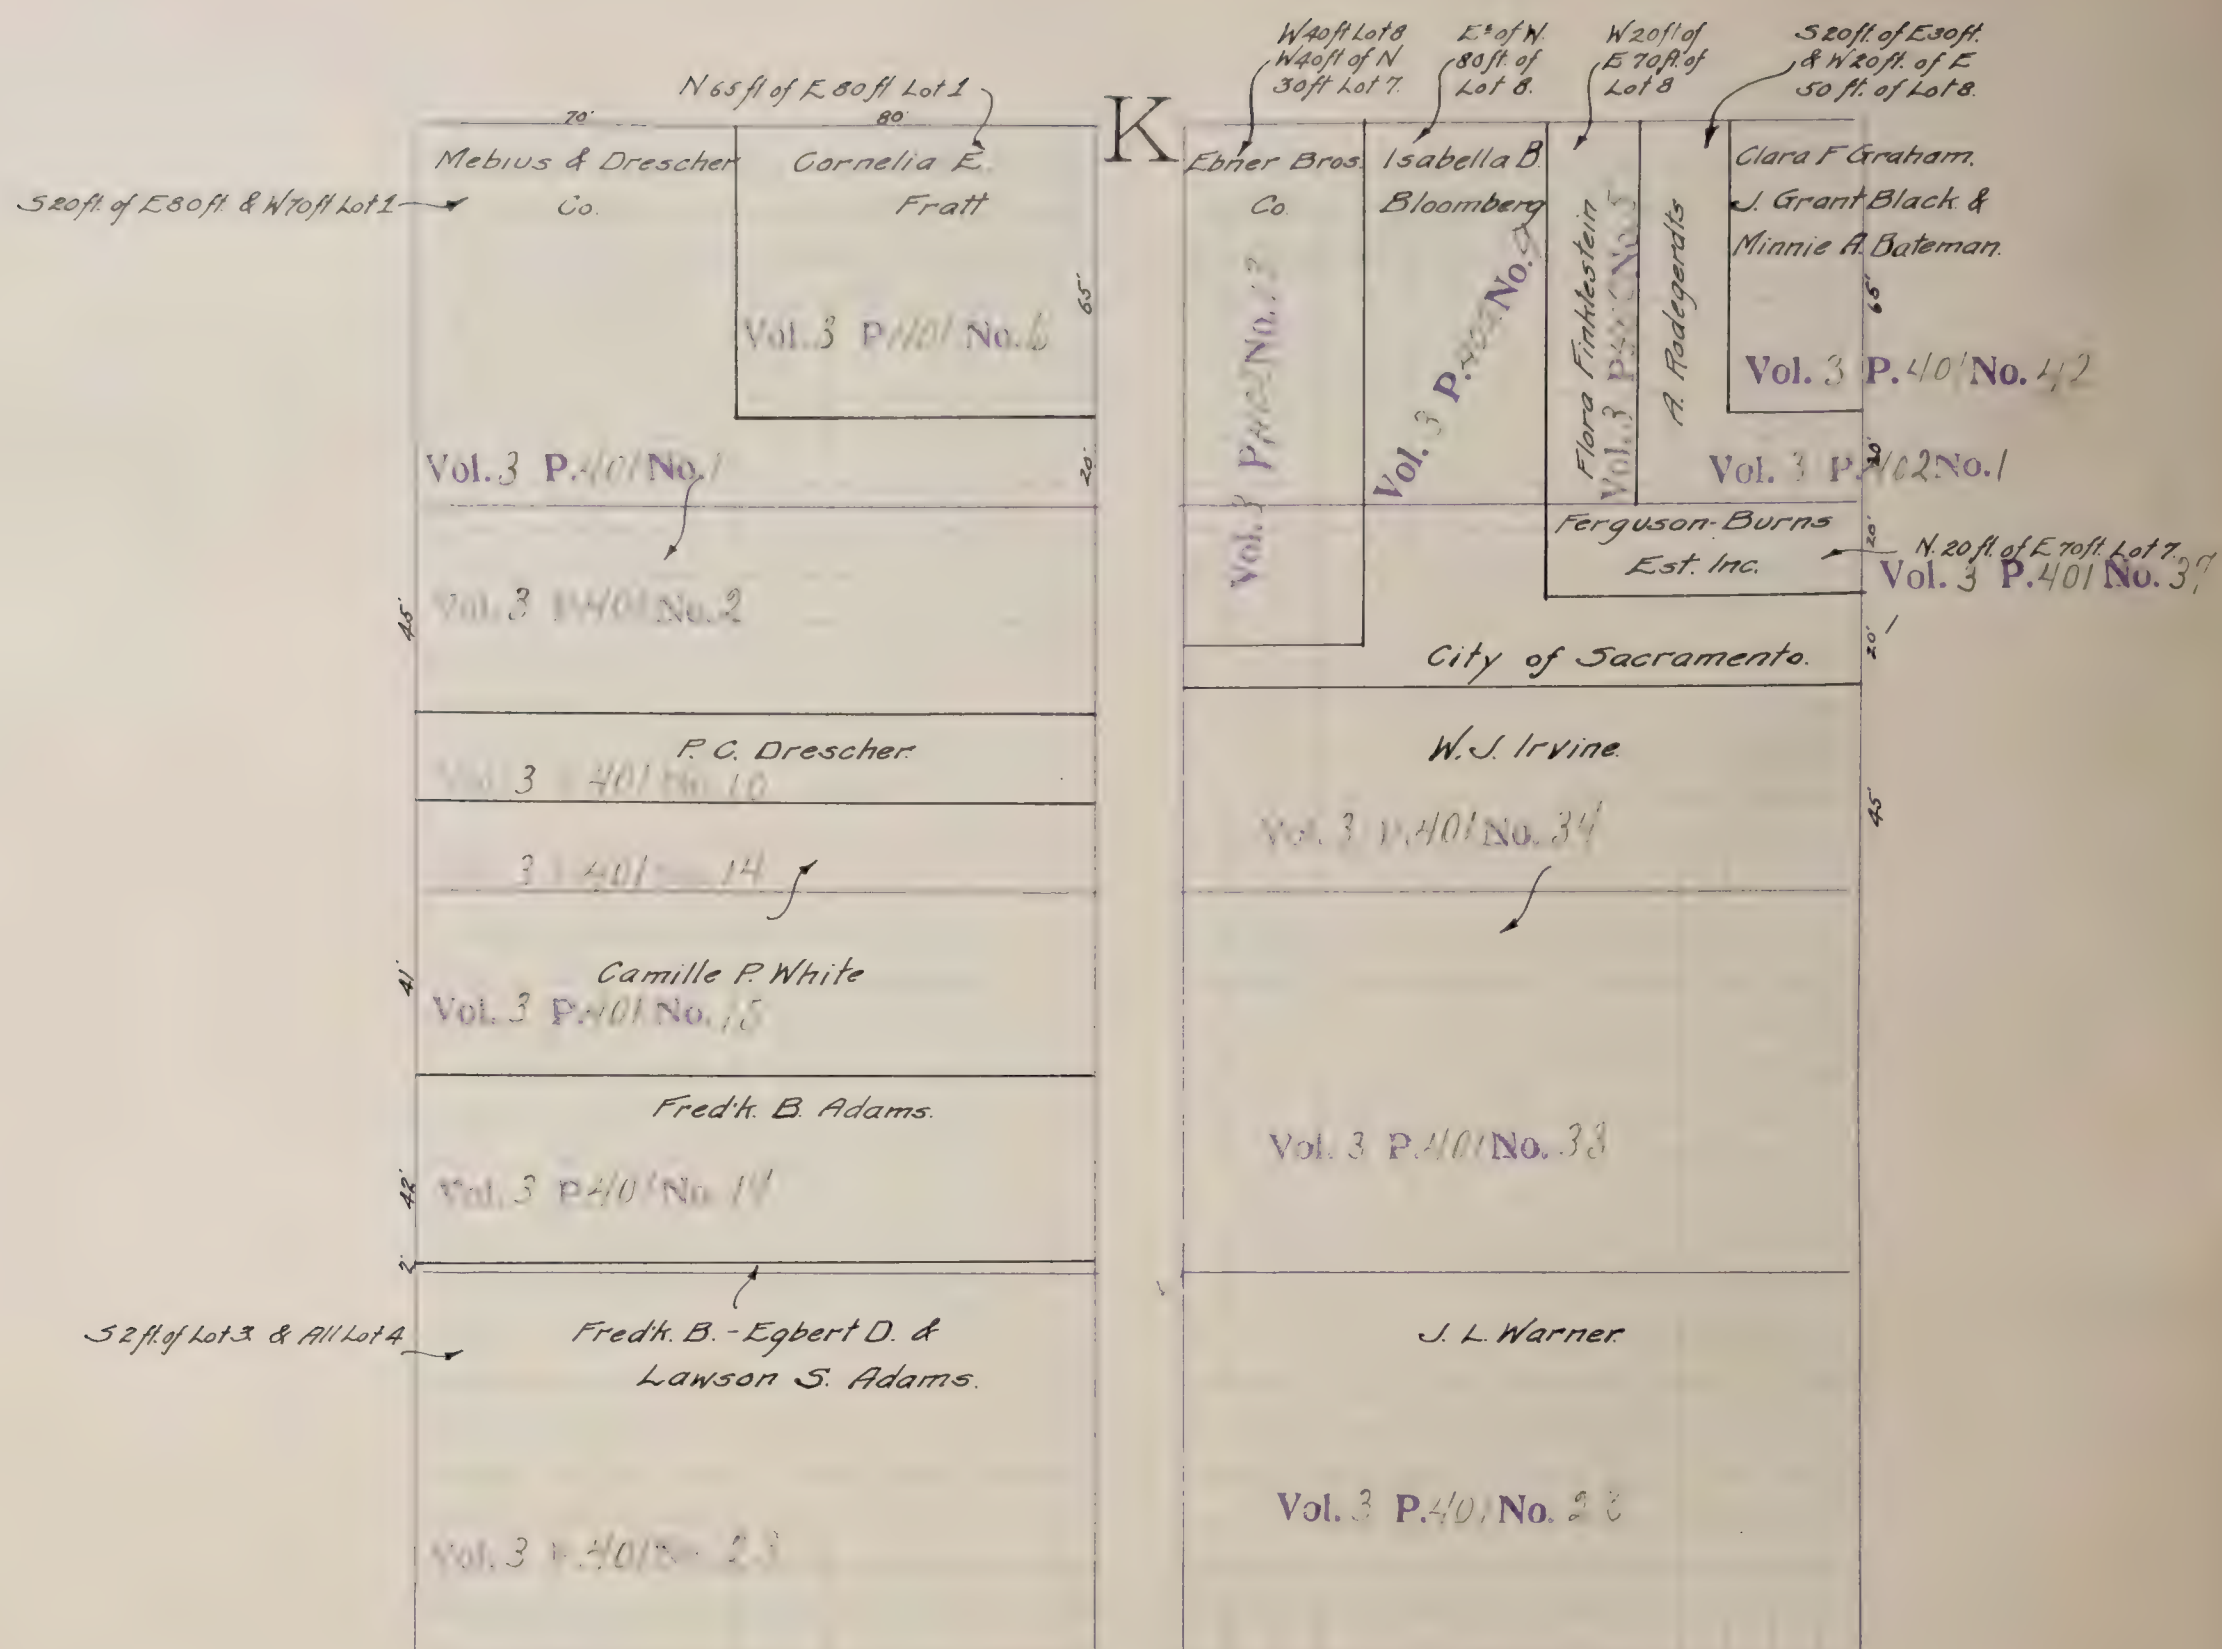 N 65 ft of E 80 ft Lot 1
W 40 ft Lot 8
W 40 ft of N
30 ft Lot 7.
of W.
80 ft. of
Lot 8.
W 20 ft of
E 70 ft. of
Lot 8
S 20 ft. of E 30 ft.
& W 20 ft. of E
50 ft. of Lot 8.
K
70'
80'
Mebius & Drescher
Co.
S 20 ft. of E 80 ft. & W 70 ft Lot 1
Cornelia E.
Fratt
65'
Vol. 3 P. 401 No. 6
20'
Vol. 3 P. 401 No. 1
Vol. 3 P. 401 No. 2
45'
P. C. Drescher.
Vol. 3 P. 401 No. 10
3 401 14
41'
Camille P. White
Vol. 3 P. 401 No. 15
Fred'k. B. Adams.
42'
Vol. 3 P. 401 No.
2'
S 2 ft. of Lot 3 & All Lot 4
Fred'k. B. - Egbert D. &
Lawson S. Adams.
Vol. 3 P. 401 No. 23
Ebner Bros.
Co.
Vol. 3 P. 402 No. 13
Isabella B.
Bloomberg
Vol. 3 P. 402 No. 9
Flora Finklestein
Vol. 3 P. 402 No. 5
A. Rodegerdts
Clara F Graham.
J. Grant Black &
Minnie A. Bateman.
65'
Vol. 3 P. 401 No. 42
20'
Vol. 3 P. 402 No. 1
Ferguson-Burns
Est. Inc.
20'
N. 20 ft. of E 70 ft. Lot 7.
Vol. 3 P. 401 No.
City of Sacramento.
20'
W. J. Irvine.
Vol. 3 P. 401 No. 34
45'
Vol. 3 P. 401 No. 33
J. L. Warner.
Vol. 3 P. 401 No.